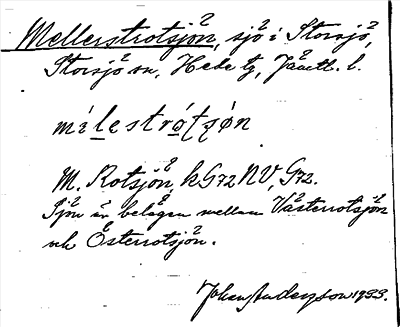 Mellerstrotsjön, sjö i Storsjö,
Storsjö sn, Hede tg, Jämtl. l.
mìlestrǫ́tʂjǿn
M. Rotsjön, k G72 NV, G72.
Sjön är belägen mellan Västerrotsjön
och Österrotsjön.
Johan Anderzson 1933.